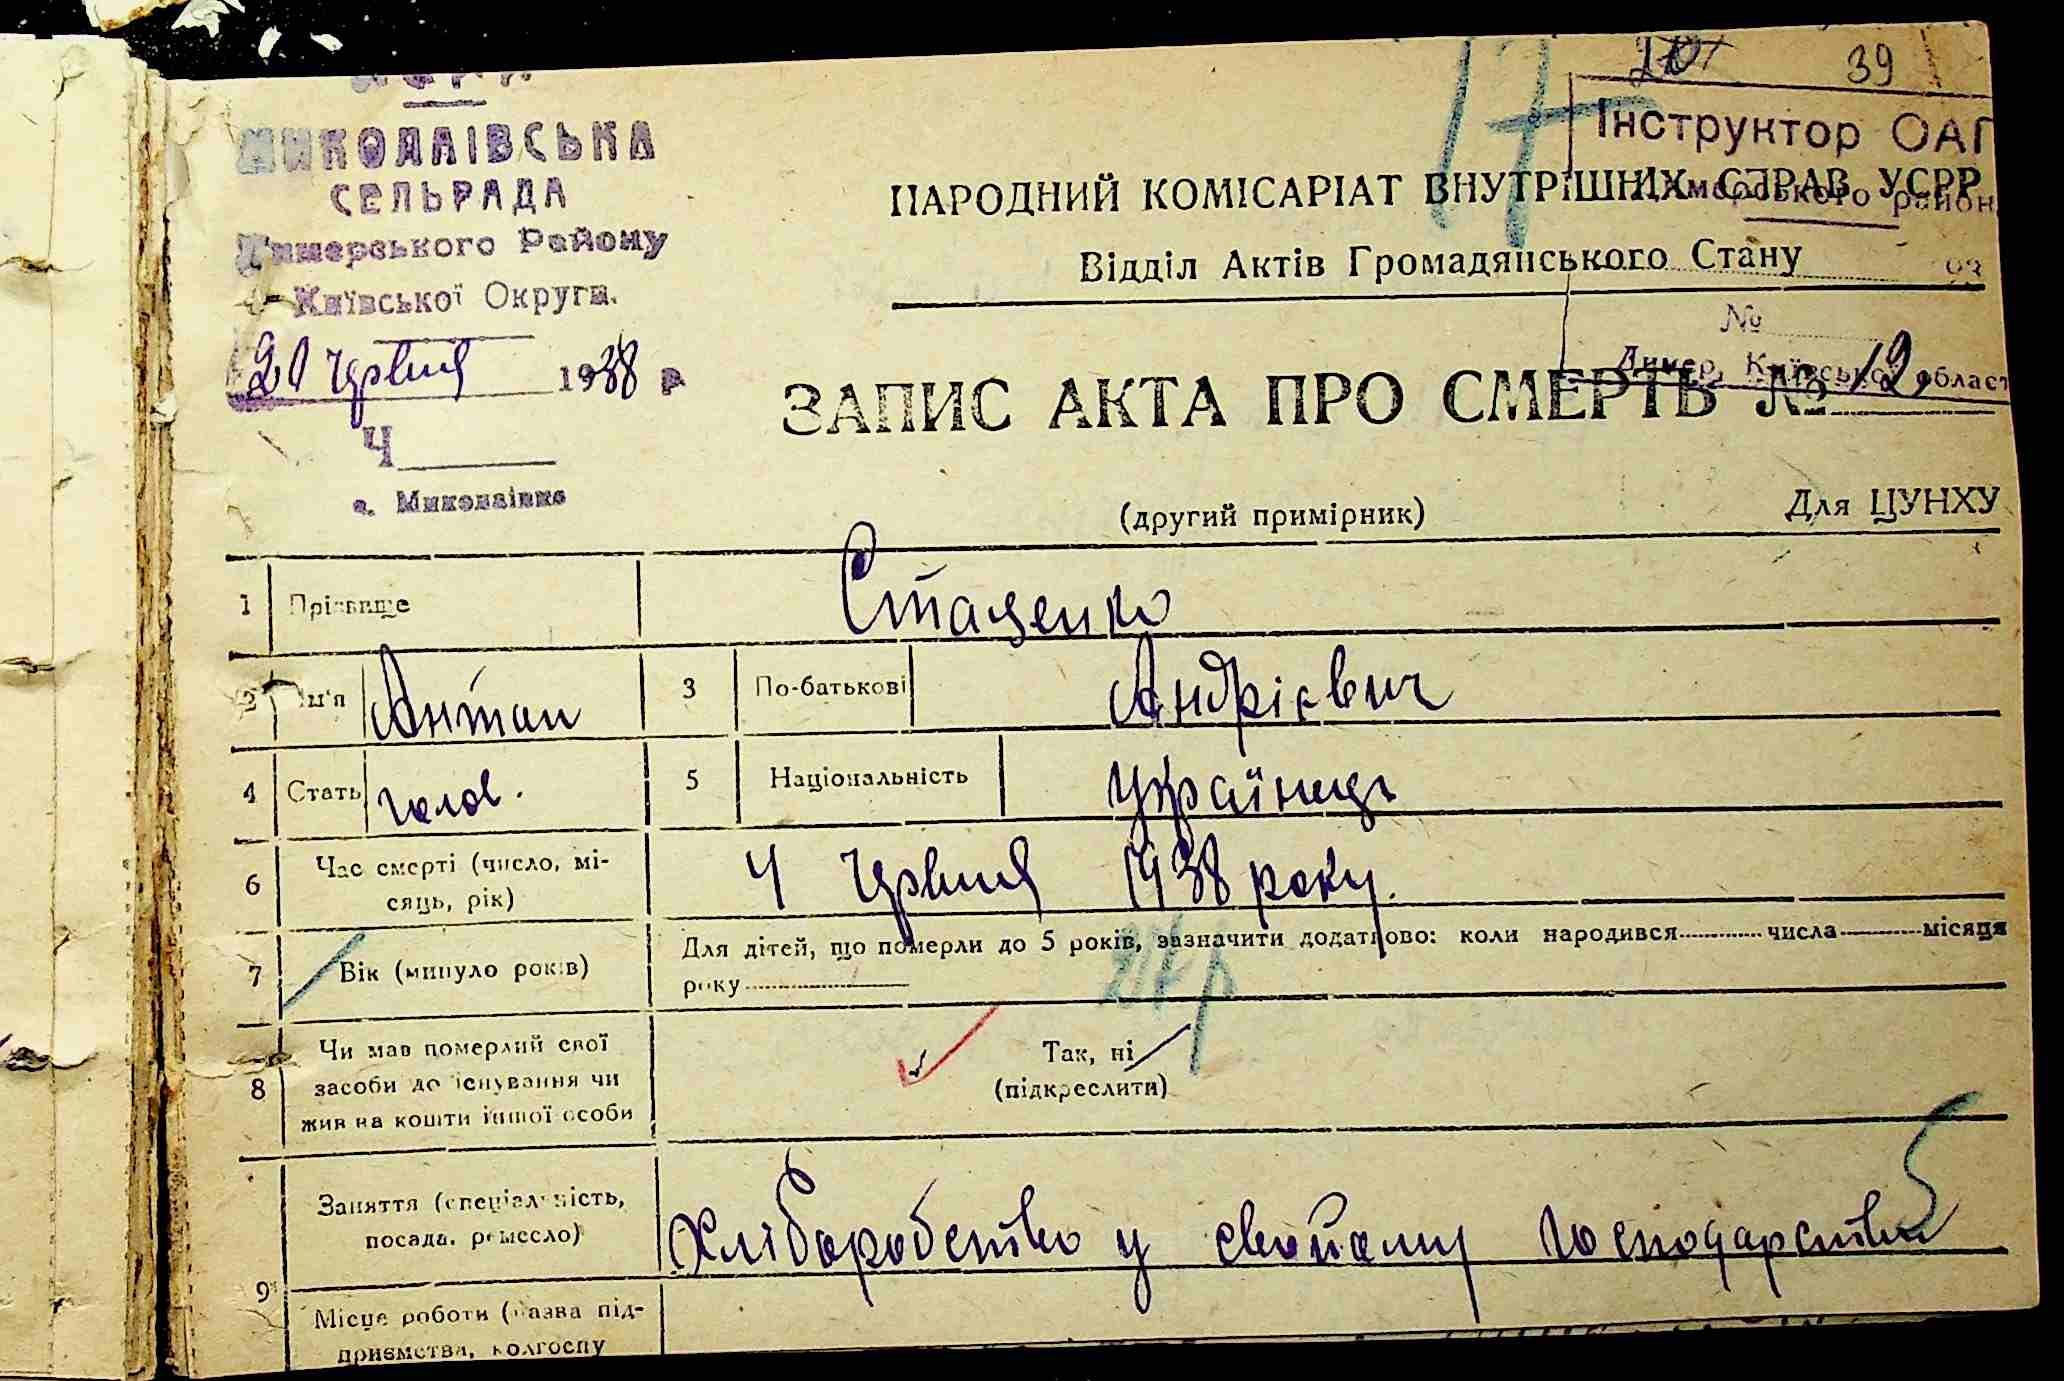 УСРР
МИКОЛАІВСЬКА
СЕЛЬРАДА
Димерського Району
Київської Округи.
20 червня 1938 р
Ч
с. Миколаівка
17
201 39
Інструктор ОАГ
Димерського район
№
Димер, Київської област
НАРОДНИЙ КОМІСАРІАТ ВНУТРІШНІХ СПРАВ УСРР
Відділ Актів Громадянського Стану
ЗАПИС АКТА ПРО СМЕРТЬ № 12
(другий примірник) Для ЦУНХУ
1 Прізвище Стаценко
2 Ім'я Антон 3 По-батькові Андрієвич
4 Стать чолов. 5 Національність українець
6 Час смерті (число, мі-
сяць, рік) 4 червня 1938 року.
7 Вік (минуло років) Для дітей, що померли до 5 років, зазначити додатково: коли народився числа місяця
року
8 Чи мав померлий свої
засоби до існування чи
жив на кошти іншої особи
Так, ні
(підкреслити)
9 Заняття (спеціальність,
посада, ремесло) Хліборобство у свойому господарстві
5
Місце роботи (назва під-
приємства, колгоспу